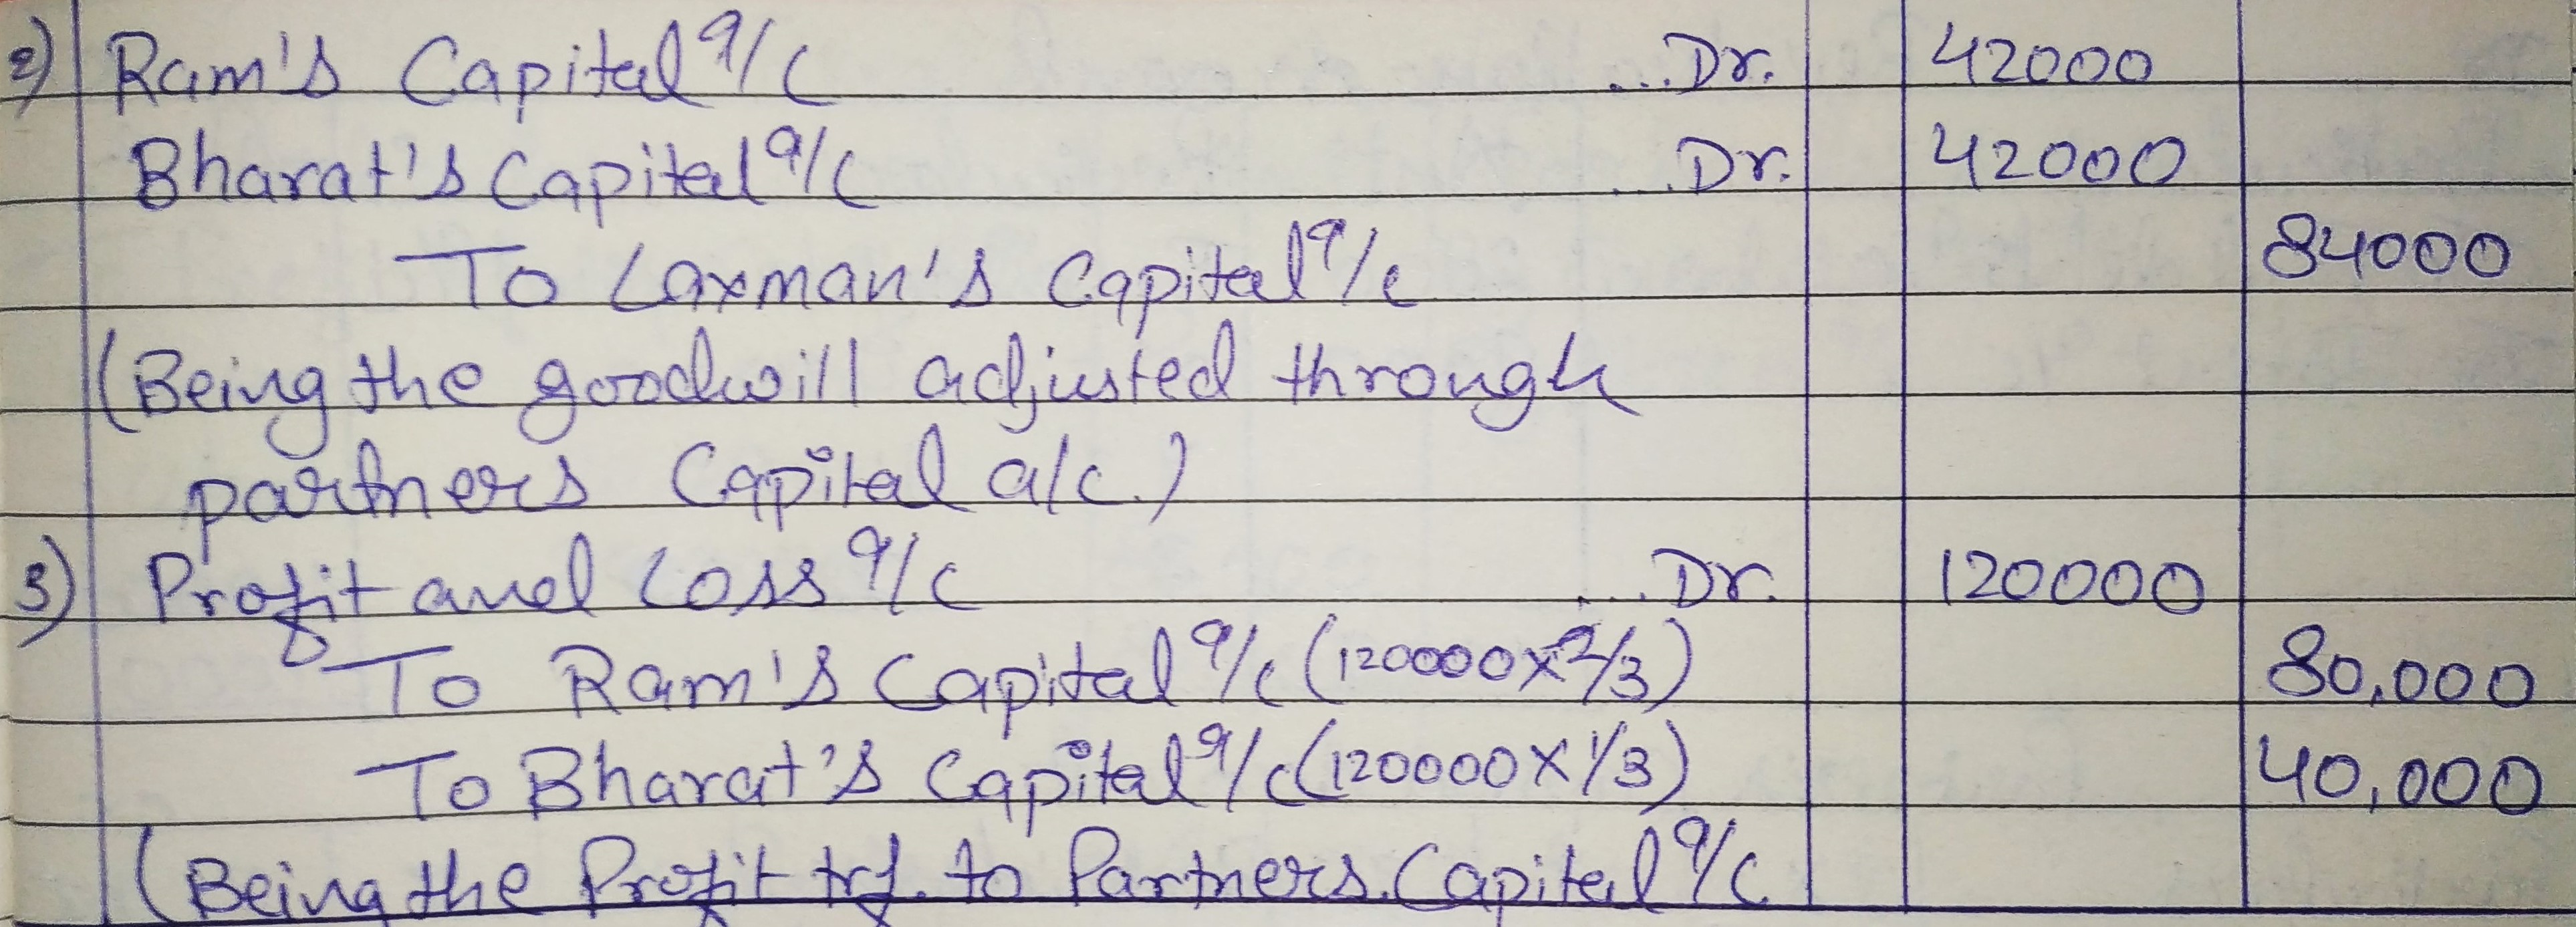 2) Ram's Capital a/c ...Dr. 42000
Bharat's Capital a/c ...Dr. 42000
To Laxman's Capital a/c 84000
(Being the goodwill adjusted through
partners Capital a/c.)
3) Profit and Loss a/c ...Dr. 120000
To Ram's Capital a/c (120000x2/3) 80,000
To Bharat's Capital a/c (120000x1/3) 40,000
(Being the Profit trf. to Partners Capital a/c